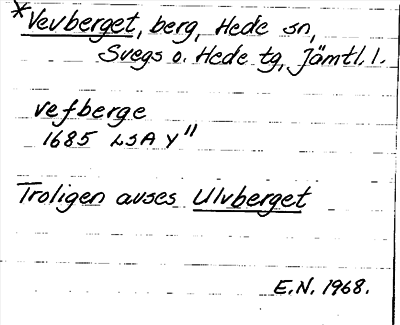 *Vevberget, berg, Hede sn,
Svegs o. Hede tg, Jämtl. l.
vefberge
1685 LSA Y"
Troligen avses Ulvberget
E.N. 1968.